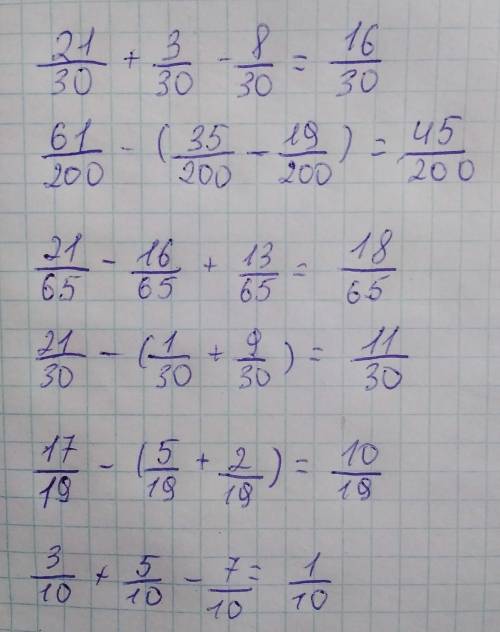 21/30 + 3/30 - 8/30 = 16/30
61/200 - (35/200 - 19/200) = 45/200
21/65 - 16/65 + 13/65 = 18/65
21/30 - (1/30 + 9/30) = 11/30
17/19 - (5/19 + 2/19) = 10/19
3/10 + 5/10 - 7/10 = 1/10